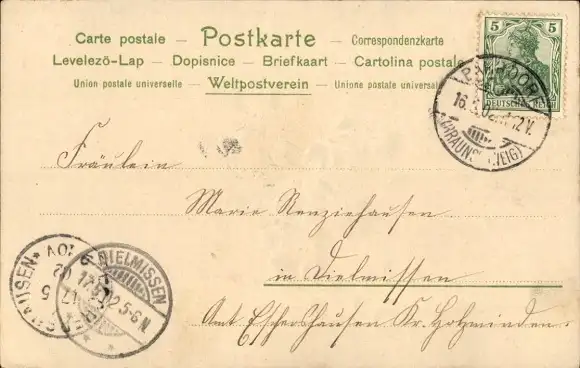 Carte postale – Postkarte – Correspondenzkarte
Levelező-Lap – Dopisnice – Briefkaart – Cartolina postale
Union postale universelle – Weltpostverein – Unione postale universale
5 5
DEUTSCHES REICH
16.5.02 11-12 V.
(BRAUNSCHWEIG)
Fräulein
Marie Renziehausen
in Dielmissen
Amt Eschershausen Kr. Holzminden.
DIELMISSEN
17.5.02 5-6 N.